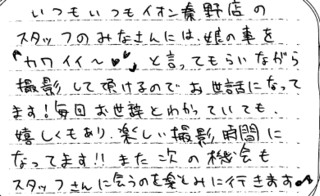 いつもいつもイオン秦野店の
スタッフのみなさんには、娘の事を
"カワイイ～♥♥"と言ってもらいながら
撮影して頂けるのでお世話になって
ます!毎回お世辞とわかっていても、
嬉しくもあり、楽しい撮影時間に
なってます!!また次の機会も
スタッフさんに会うのを楽しみに行きます♪